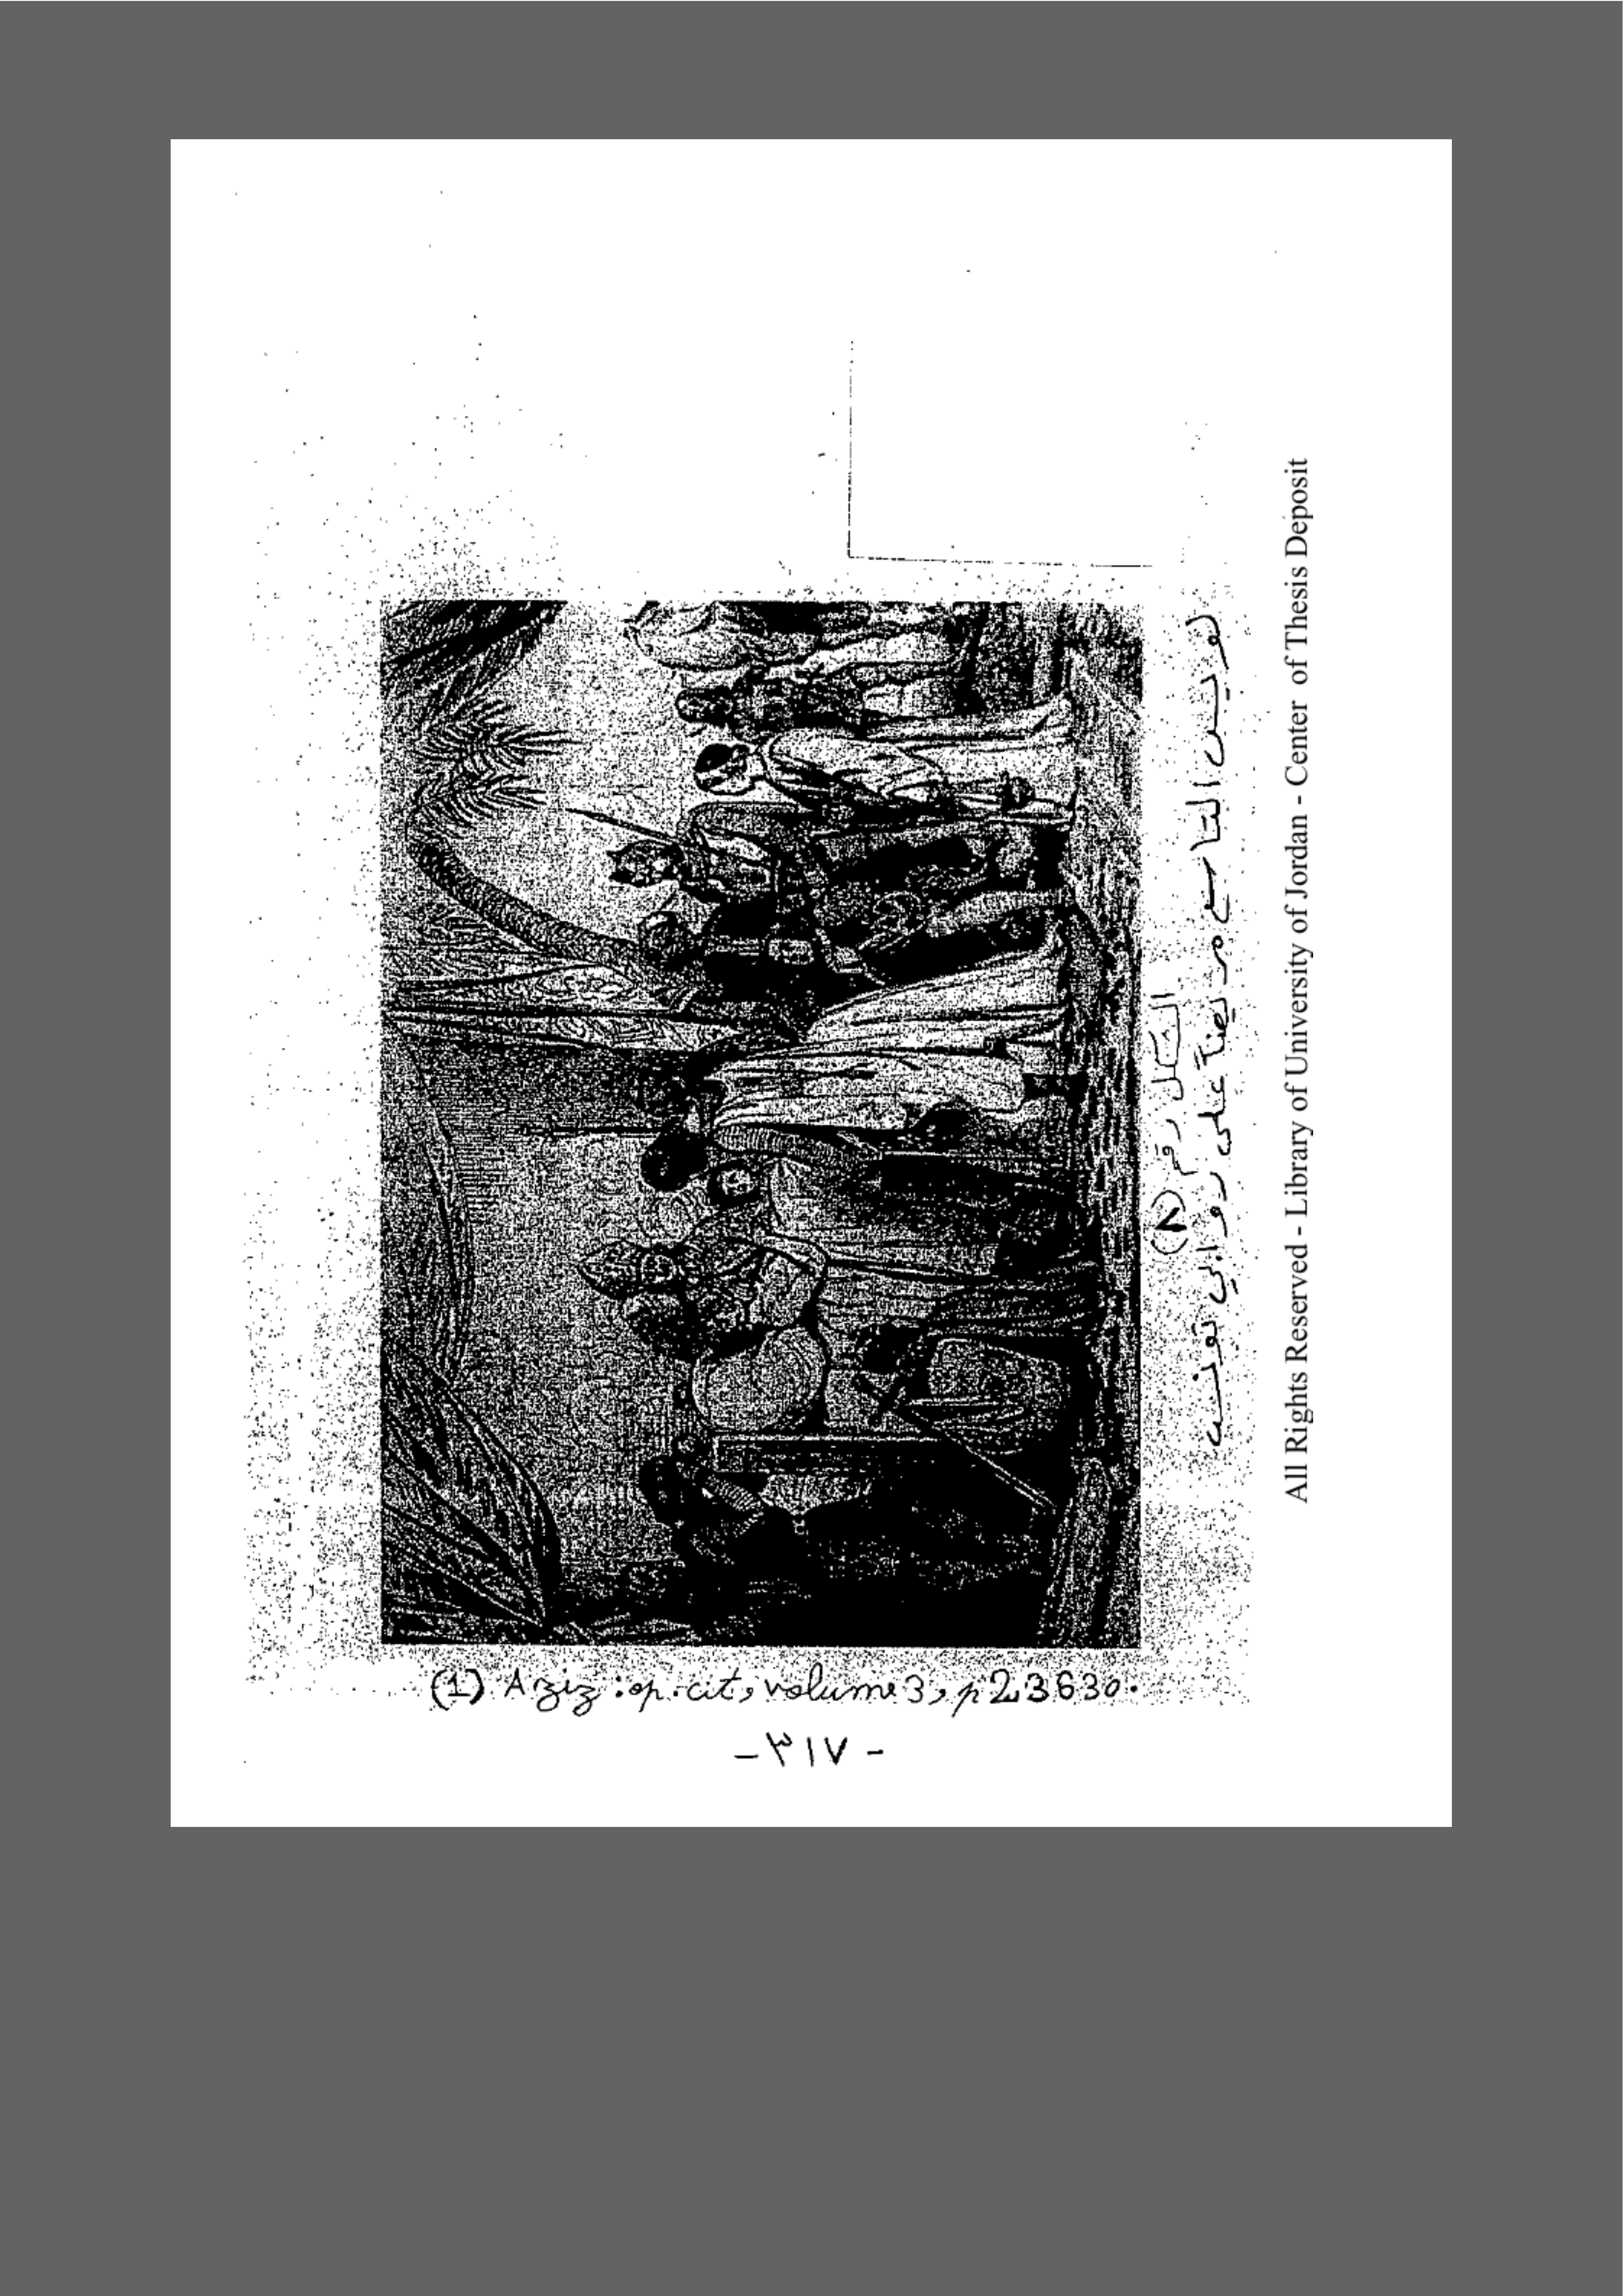 الشكل رقم (٧)
لويس التاسع مريضاً على روابي تونس
(1) Aziz : op. cit, volume 3, p 2,3630.
-٣١٧-
All Rights Reserved - Library of University of Jordan - Center of Thesis Deposit